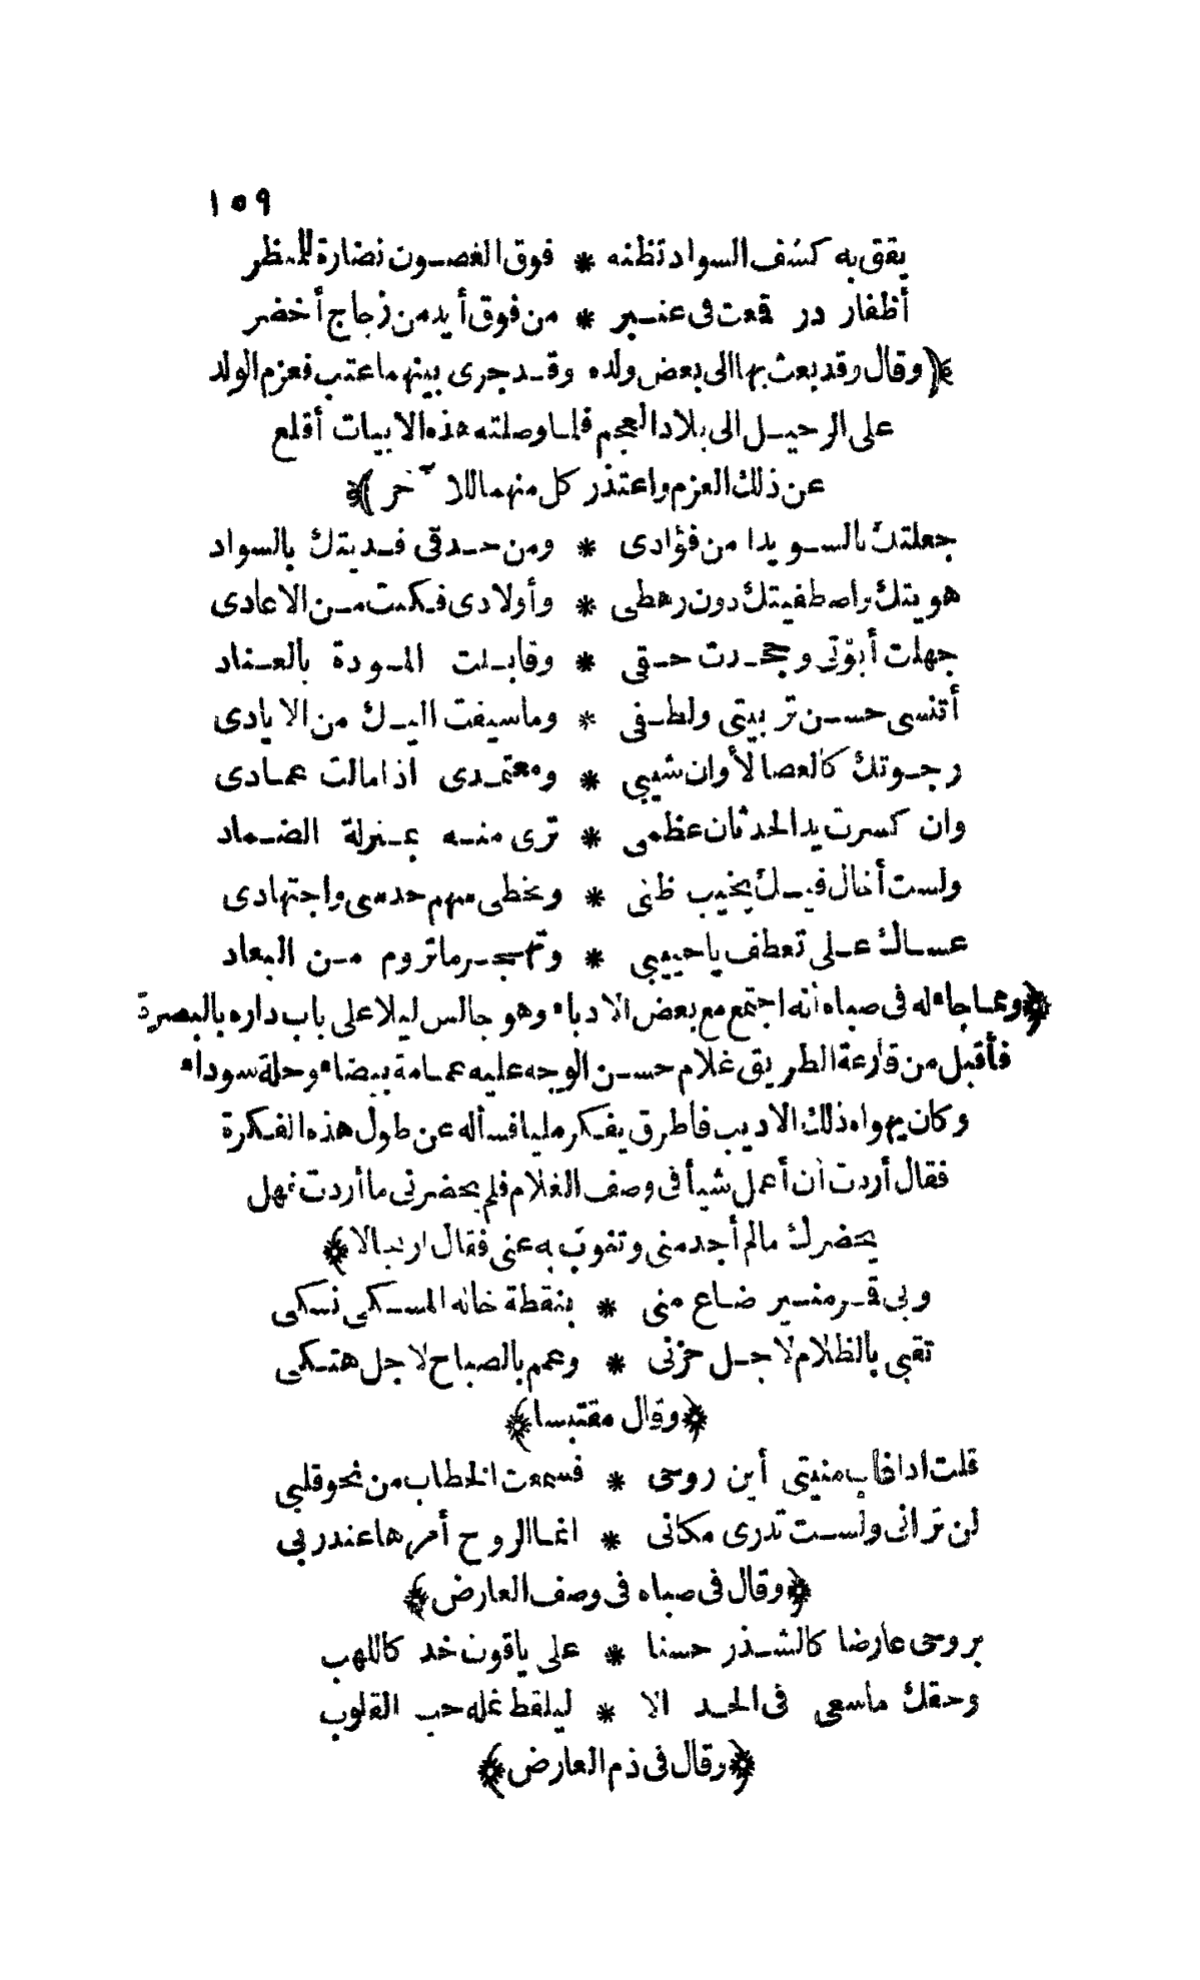 ١٥٩
يقق به كسُف السواد تظنه * فوق الغصون نضارة للمنظر
أظفار در قمعت فى عنبر * من فوق أيد من زجاج أخضر
﴿وقال وقد بعث بها الى بعض ولده وقد جرى بينهما عتب فعزم الولد
على الرحيل الى بلاد العجم فلما وصلته هذه الابيات أقلع
عن ذلك العزم واعتذر كل منهما للآخر﴾
جعلتك بالسويدا من فؤادى * ومن حدقى فديتك بالسواد
هويتك واصطفيتك دون رهطى * وأولادى فكنت من الاعادى
جهلت أبوّتى وجحدت حقى * وقابلت المودة بالعناد
أتنسى حسن تربيتى ولطفى * وما سيقت اليك من الايادى
رجوتك كالعصا لأوان شيبى * ومعتمدى اذا مالت عمادى
وان كسرت يد الحدثان عظمى * ترى منه بمنزلة الضماد
ولست أخال فيك يخيب ظنى * ويخطى سهم حدسى واجتهادى
عساك على تعطف يا حبيبى * وتهجر ما تروم من البعاد
﴿ومما جاء له فى صباه انه اجتمع مع بعض الادباء وهو جالس ليلا على باب داره بالبصرة
فأقبل من قارعة الطريق غلام حسن الوجه عليه عمامة بيضاء وحلة سوداء
وكان يهواه ذلك الاديب فأطرق يفكر مليا فسأله عن طول هذه الفكرة
فقال أردت أن أعمل شيأ فى وصف الغلام فلم يحضرنى ما أردت فهل
يحضرك ما لم أجد منى وتفوت به عنى فقال ارتجالا﴾
وبى قمر منير ضاع منى * بنقطة خاله المسكى نسكى
تقبى بالظلام لاجل حزنى * وعمم بالصباح لاجل هتكى
﴿وقال مقتبسا﴾
قلت اذا غاب منيتى أين روحى * فسمعت الخطاب من نحو قلبى
لن ترانى ولست تدرى مكانى * انما الروح أمرها عند ربى
﴿وقال فى صباه فى وصف العارض﴾
بروحى عارضا كالشذر حسنا * على ياقوت خد كاللهب
وحقك ما سعى فى الخد الا * ليلقط نمله حب القلوب
﴿وقال فى ذم العارض﴾